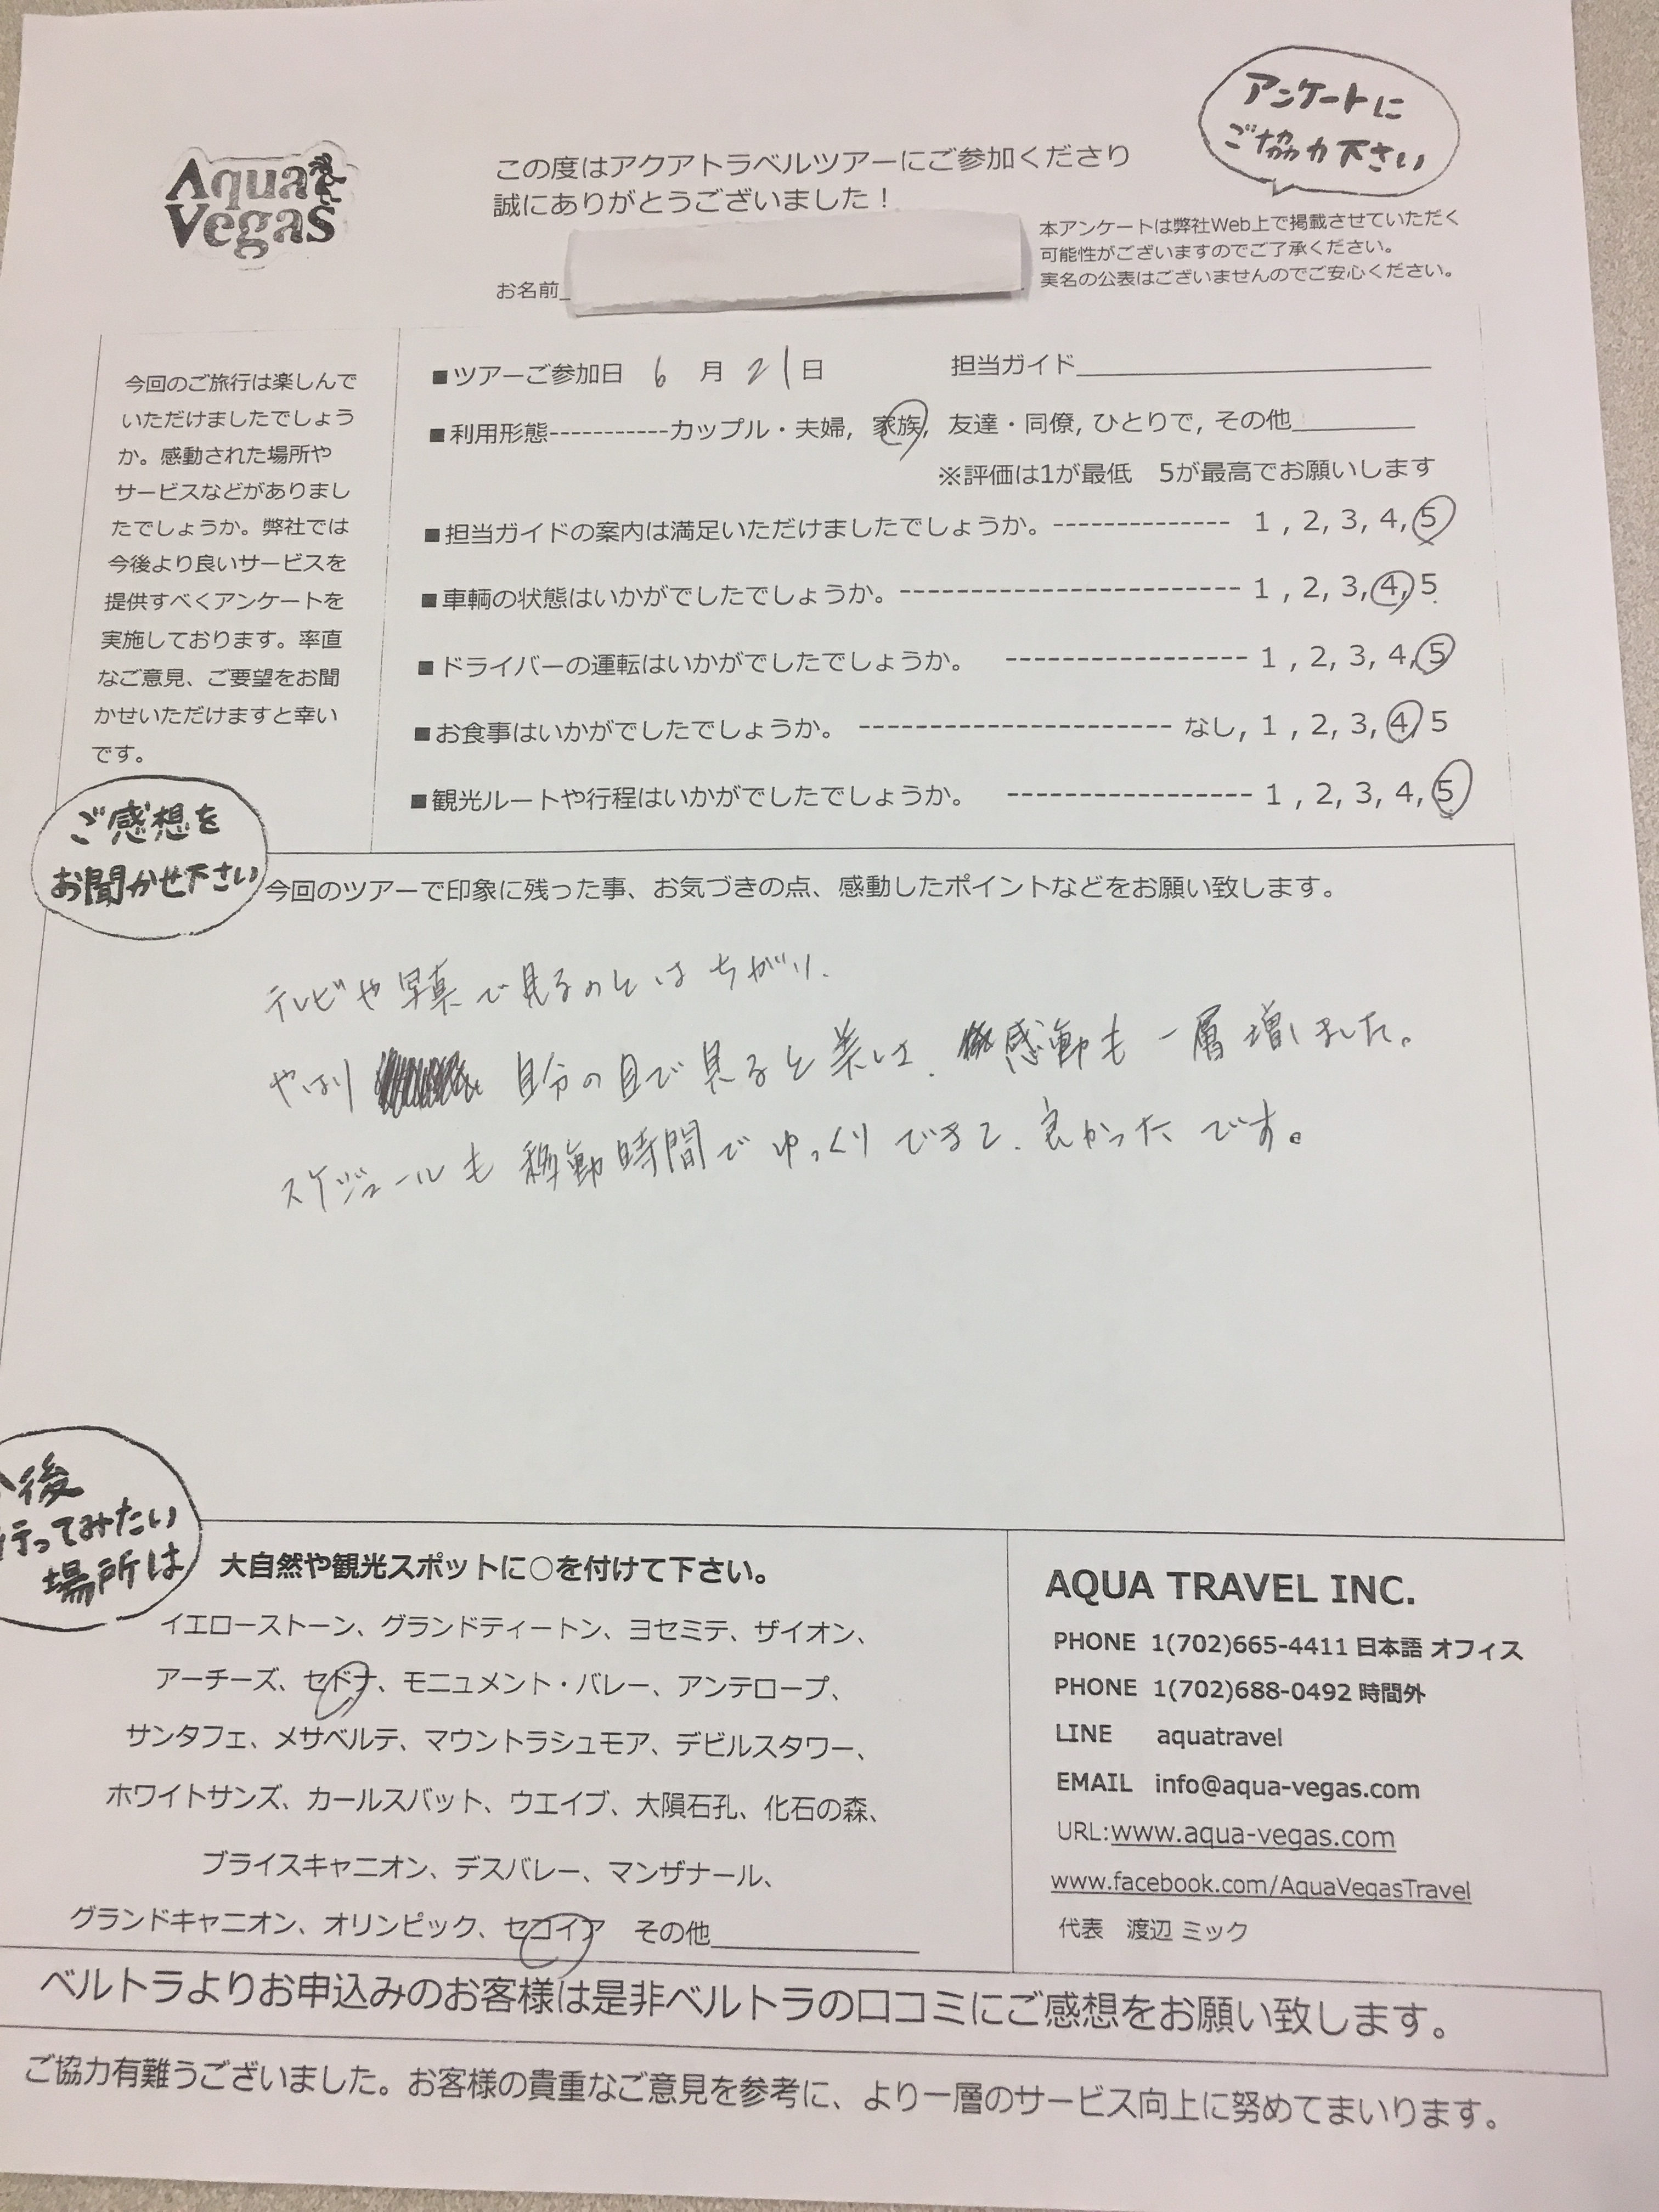 アンケートに
ご協力下さい
Aqua
Vegas
この度はアクアトラベルツアーにご参加くださり
誠にありがとうございました!
お名前
本アンケートは弊社Web上で掲載させていただく
可能性がございますのでご了承ください。
実名の公表はございませんのでご安心ください。
今回のご旅行は楽しんで
いただけましたでしょう
か。感動された場所や
サービスなどがありまし
たでしょうか。弊社では
今後より良いサービスを
提供すべくアンケートを
実施しております。率直
なご意見、ご要望をお聞
かせいただけますと幸い
です。
■ツアーご参加日 6 月 21 日 担当ガイド
■利用形態-----------カップル・夫婦, 家族, 友達・同僚, ひとりで, その他
※評価は1が最低 5が最高でお願いします
■担当ガイドの案内は満足いただけましたでしょうか。-------------- 1 , 2, 3, 4, 5
■車輌の状態はいかがでしたでしょうか。--------------------------- 1 , 2, 3, 4, 5
■ドライバーの運転はいかがでしたでしょうか。 ------------------- 1 , 2, 3, 4, 5
■お食事はいかがでしたでしょうか。 ------------------------- なし, 1 , 2, 3, 4, 5
■観光ルートや行程はいかがでしたでしょうか。 ------------------- 1 , 2, 3, 4, 5
ご感想を
お聞かせ下さい
今回のツアーで印象に残った事、お気づきの点、感動したポイントなどをお願い致します。
テレビや写真で見るのとはちがい、
やはり 自分の目で見ると 感動も一層増しました。
スケジュールも移動時間でゆっくりできて、良かったです。
後
行ってみたい
場所は
大自然や観光スポットに○を付けて下さい。
イエローストーン、グランドティートン、ヨセミテ、ザイオン、
アーチーズ、セドナ、モニュメント・バレー、アンテロープ、
サンタフェ、メサベルテ、マウントラシュモア、デビルスタワー、
ホワイトサンズ、カールスバット、ウエイブ、大隕石孔、化石の森、
ブライスキャニオン、デスバレー、マンザナール、
グランドキャニオン、オリンピック、セコイア その他
AQUA TRAVEL INC.
PHONE 1(702)665-4411 日本語 オフィス
PHONE 1(702)688-0492 時間外
LINE aquatravel
EMAIL info@aqua-vegas.com
URL:www.aqua-vegas.com
www.facebook.com/AquaVegasTravel
代表 渡辺 ミック
ベルトラよりお申込みのお客様は是非ベルトラの口コミにご感想をお願い致します。
ご協力有難うございました。お客様の貴重なご意見を参考に、より一層のサービス向上に努めてまいります。